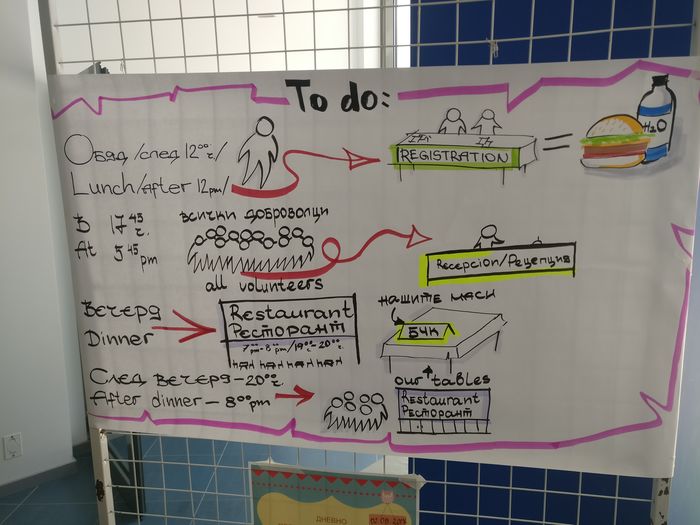 To do:
Обяд /след 12⁰⁰ч/
Lunch/After 12pm/
REGISTRATION
=
H₂O
В 17⁴⁵ч.
At 5⁴⁵pm
всички доброволци
all volunteers
Recepcion/Рецепция
Вечеря
Dinner
Restaurant
Ресторант
7pm-8⁰⁰pm/19⁰⁰ч-20⁰⁰ч
нашите маси
БЧК
our tables
След вечеря-20⁰⁰ч.
After dinner-8⁰⁰pm
Restaurant
Ресторант
ДНЕВНО